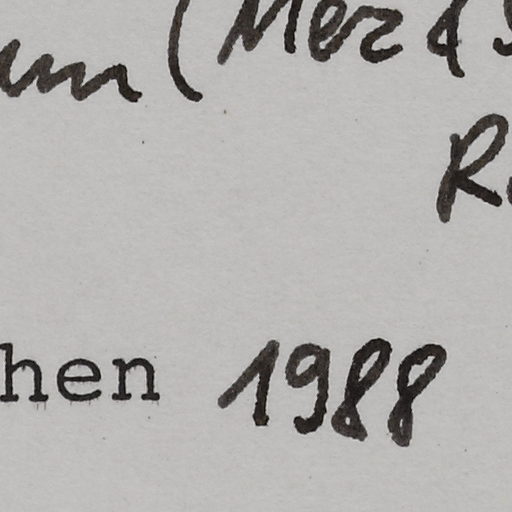 um (Merz &
R
hen 1988